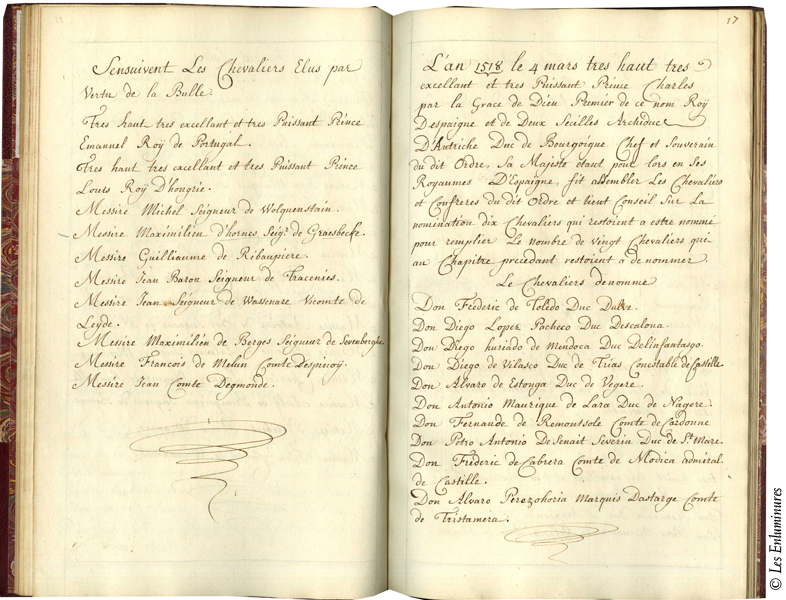 Sensuivent Les Chevaliers Elus par
Vertu de la Bulle.
Tres haut tres excellant et tres Puissant Prince
Emanuel Roÿ de Portugal.
Tres haut tres excellant et tres Puissant Prince
Louis Roÿ D'hongrie.
Messire Michel Seigneur de Wolquenstain.
Messire Maximilien d'hornes Seigr. de Graesbecke.
Messire Guilliaume de Ribaupiere.
Messire Jean Baron Seigneur de Tracenies.
Messire Jean Seigneur de Wassenare Vicomte de
Leyde.
Messire Maximilien de Berges Seigneur de Sevenberghe
Messire Francois de Melun Comte Lespinoy.
Messire Jean Comte Degmonde.
17
L'an 1518 le 4 mars tres haut tres
excellant et tres Puissant Prince Charles
par la Grace de Dieu Premier de ce nom Roÿ
Despaigne et de Deux Secilles Archiduc
D'Autriche Duc de Bourgoigne Chef et Souverain
du dit Ordre, Sa Majeste etant pour lors en Ses
Royaumes D'Espaigne, fit assembler Les Chevaliers
et Confreres du dit Ordre et tient Conseil Sur La
nomination dix Chevaliers qui restoient a estre nommé
pour remplier Le nombre de vingt Chevaliers qui
au Chapitre precedant restoient a de nommer.
Le Chevaliers denomme
Don Frederic de Toledo Duc Dalve.
Don Diego Loper Pacheco Duc Descalona.
Don Diego huriado de Mendoca Duc Delinfantasgo.
Don Diego de Vilasco Duc de Trias Conestable de Castille
Don Alvaro de Estonga Duc de Vegere.
Don Antonio Maurique de Lara Duc de Nagere.
Don Fernande de Remontsole Comte de Cardonne
Don Petro Antonio De Senait Severin Duc de St. Marc.
Don Frideric de Cabrera Comte de Modica admiral.
de Castille.
Don Alvaro Perezohoria Marquis Dastarge Comte
de Tristamera.
© Les Enluminures